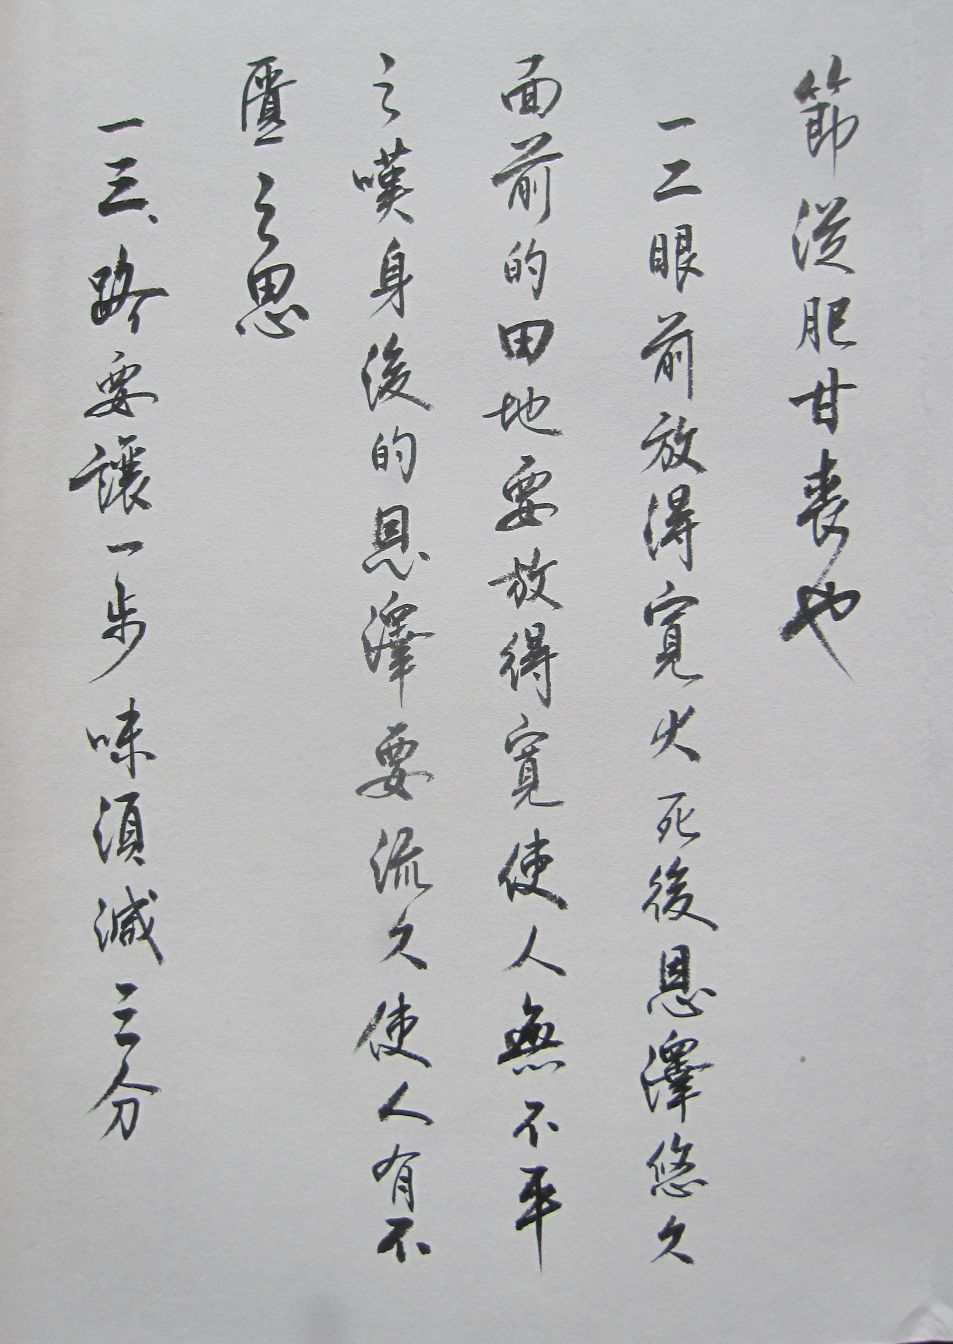 節從肥甘喪也
一二眼前放得寬大死後恩澤悠久
面前的田地要放得寬使人無不平
之嘆身後的恩澤要流久使人有不
匱之思
一三、路要讓一步味須減三分